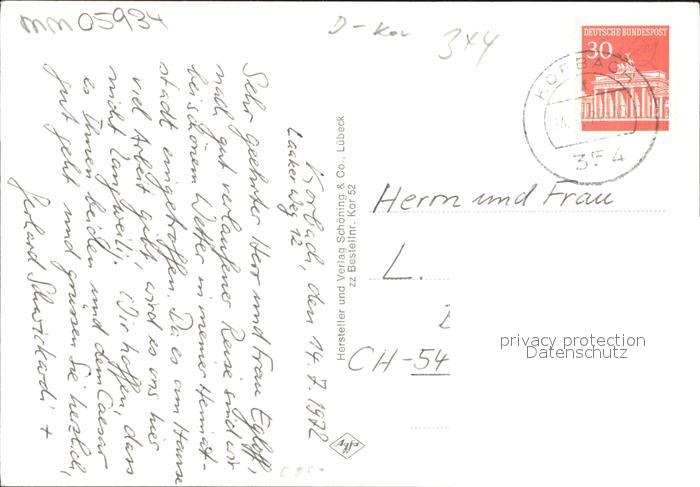 mm 0593
D-Kor
344
Korbach, den 14. 7. 1972
Laaker Weg 12
Sehr geehrter Herr und Frau Egloff,
nach gut verlaufener Reise sind wir
bei schönem Wetter in meiner Heimat-
stadt eingetroffen. Da es am Hause
viel Arbeit gibt, wird es uns hier
nicht langweilig. Wir hoffen, dass
es Ihnen beiden und dem Caesar
gut geht und grüssen Sie herzlich,
Gerhard +
Hersteller und Verlag Schöning & Co., Lübeck
zz Bestellnr. Kor 52
DEUTSCHE BUNDESPOST
30
KORBACH
354
Herrn und Frau
L.
CH-54
privacy protection
Datenschutz